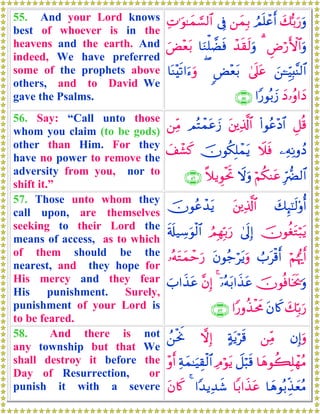 55. And your Lord knows
best of whoever is in the
heavens and the earth. And
indeed, We have preferred
some of the prophets above
others, and to David We
gave the Psalms.
وَرَبُّكَ أَعْلَمُ بِمَن فِى ٱلسَّمَـٰوَٰتِ
وَٱلْأَرْضِ ۗ وَلَقَدْ فَضَّلْنَا بَعْضَ
ٱلنَّبِيِّـۧنَ عَلَىٰ بَعْضٍ ۖ وَءَاتَيْنَا
دَاوُۥدَ زَبُورًا ﴿٥٥﴾
56. Say: “Call unto those
whom you claim (to be gods)
other than Him. For they
have no power to remove the
adversity from you, nor to
shift it.”
قُلِ ٱدْعُوا۟ ٱلَّذِينَ زَعَمْتُم مِّن
دُونِهِۦ فَلَا يَمْلِكُونَ كَشْفَ
ٱلضُّرِّ عَنكُمْ وَلَا تَحْوِيلًا ﴿٥٦﴾
57. Those unto whom they
call upon, are themselves
seeking to their Lord the
means of access, as to which
of them should be the
nearest, and they hope for
His mercy and they fear
His punishment. Surely,
punishment of your Lord is
to be feared.
أُو۟لَـٰٓئِكَ ٱلَّذِينَ يَدْعُونَ
يَبْتَغُونَ إِلَىٰ رَبِّهِمُ ٱلْوَسِيلَةَ
أَيُّهُمْ أَقْرَبُ وَيَرْجُونَ رَحْمَتَهُۥ
وَيَخَافُونَ عَذَابَهُۥٓ ۚ إِنَّ عَذَابَ
رَبِّكَ كَانَ مَحْذُورًا ﴿٥٧﴾
58. And there is not
any township but that We
shall destroy it before the
Day of Resurrection, or
punish it with a severe
وَإِن مِّن قَرْيَةٍ إِلَّا نَحْنُ
مُهْلِكُوهَا قَبْلَ يَوْمِ ٱلْقِيَـٰمَةِ أَوْ
مُعَذِّبُوهَا عَذَابًا شَدِيدًا ۚ كَانَ